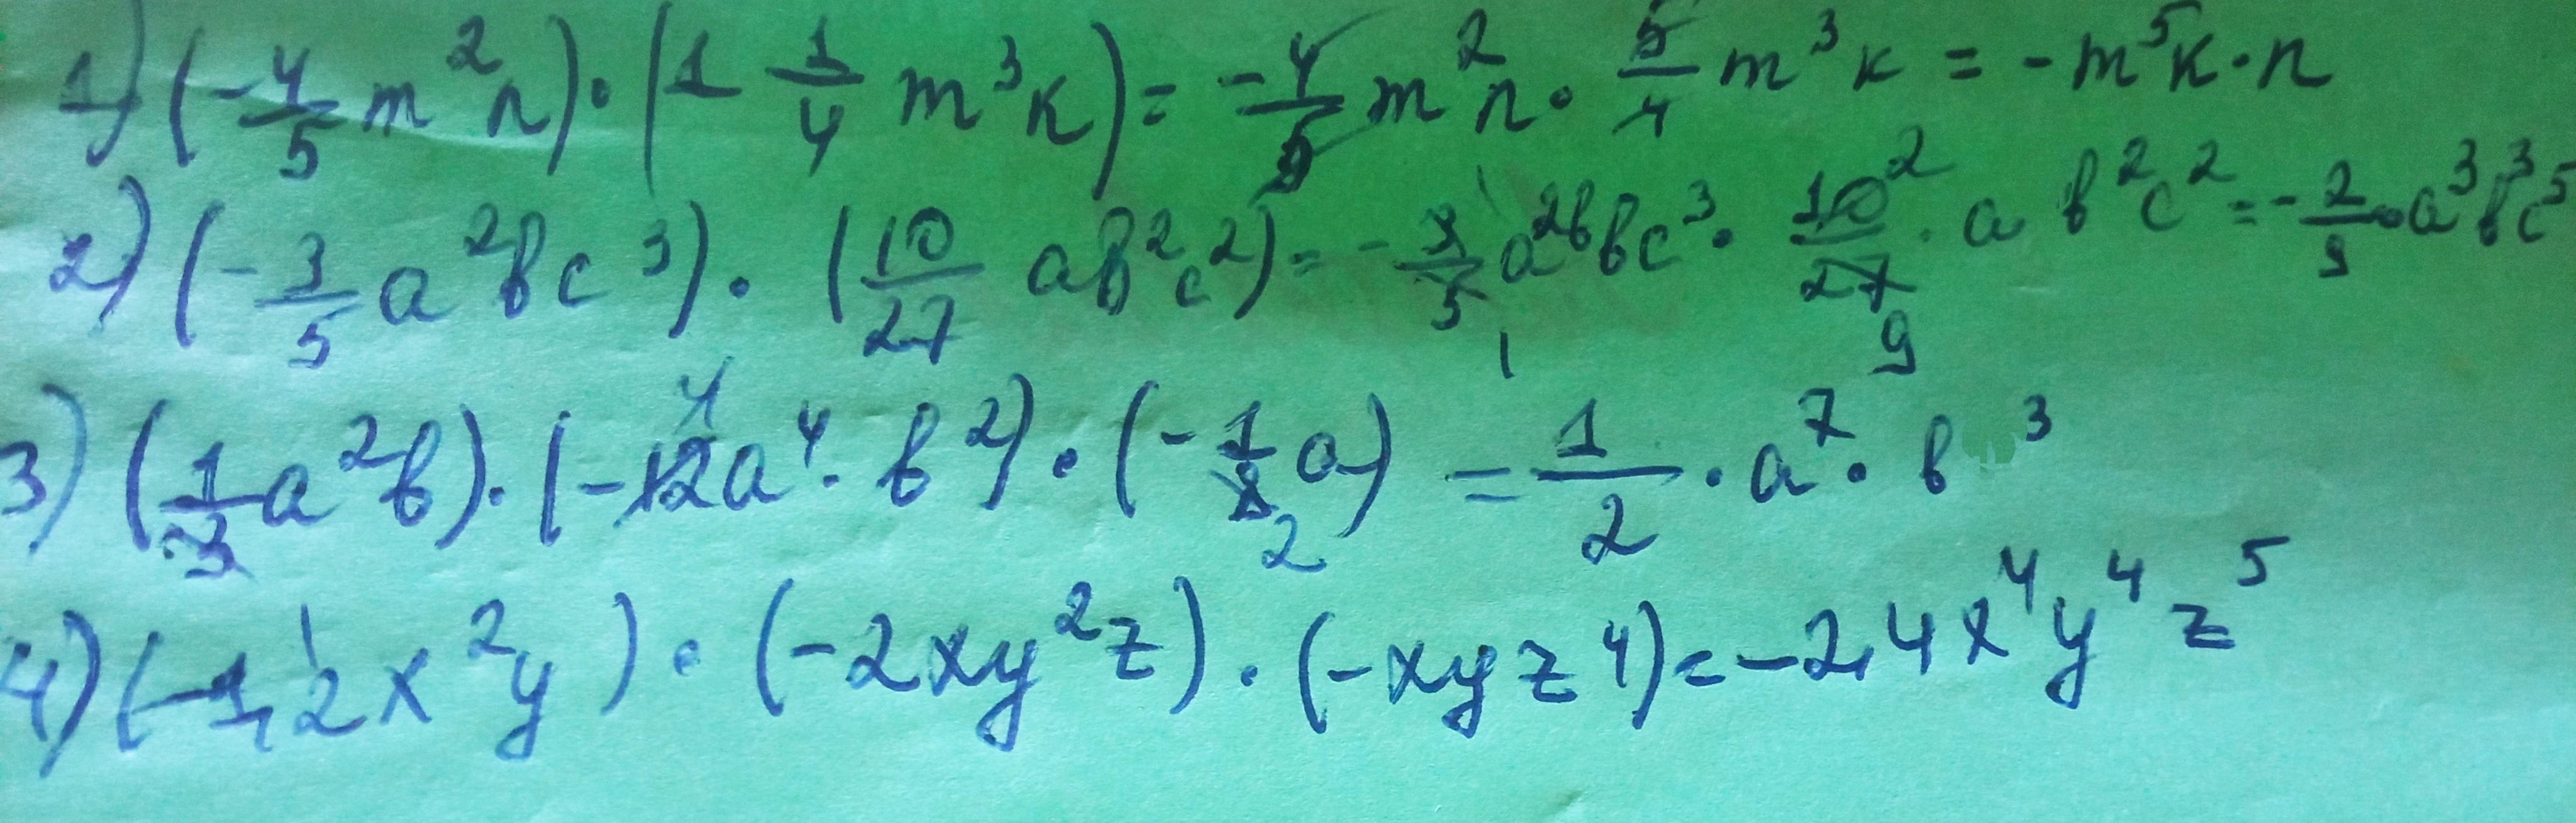 1) (-4/5 m²n)·(1 1/4 m³к) = -4/5 m²n · 5/4 m³к = -m⁵к·n
2) (-3/5 a²вc³)·(10/27 aв²c²) = -3/5 a²вc³ · 10/27 · a в²c² = -2/9 · a³в³c⁵
3) (1/3 a²в)·(-12a⁴·в²)·(-1/8 a) = 1/2 · a⁷ · в³
4) (-1,2x²y)·(-2xy²z)·(-xyz⁴) = -2,4x⁴y⁴z⁵